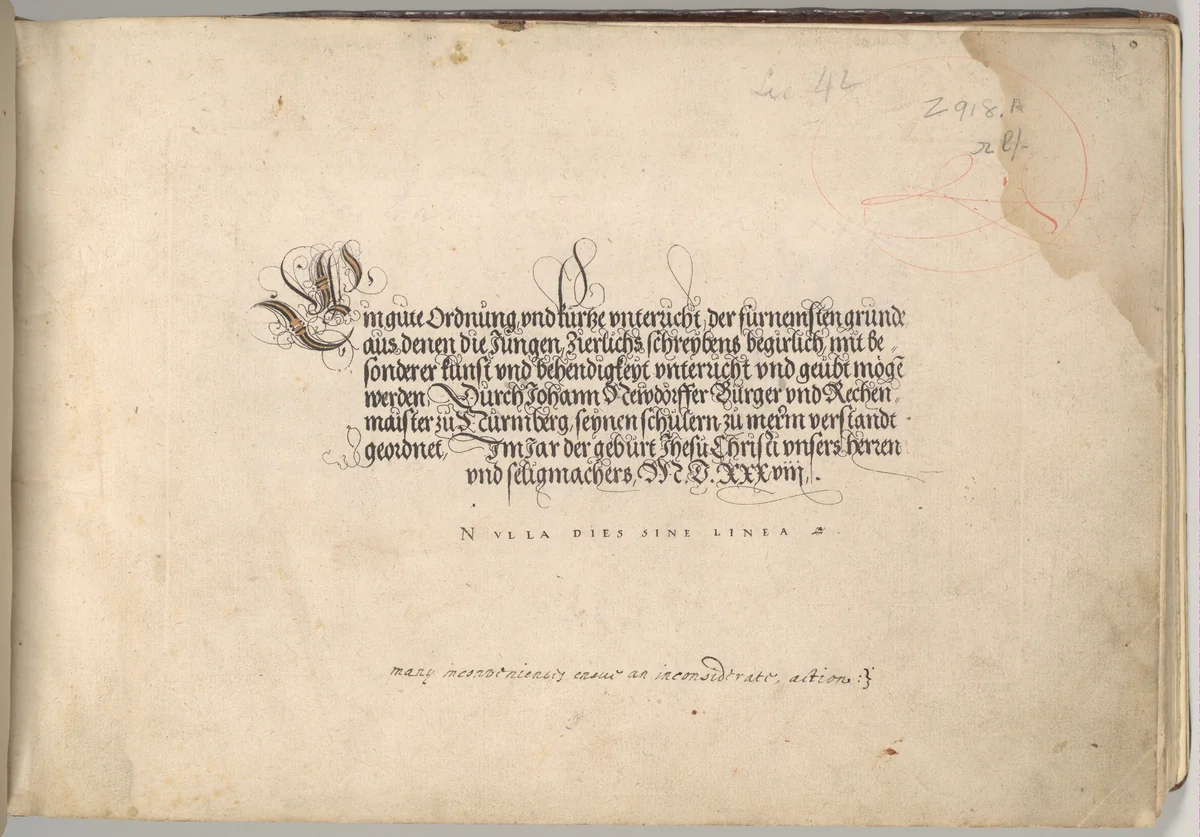 Lie 42
Z 918. A
Ein gute Ordnung, vnd kurtze vnterricht, der furnemsten grunde
aus denen die Jungen, Zierlichs schreybens begirlich, mit be=
sonderer kunst vnd behendigkeyt vnterricht vnd geubt mögē
werden, Durch Johann Newdörffer Burger vnd Rechen=
maister zu Nurmberg, seynen schulern zu merm verstandt
geordnet, Im Jar der geburt Jhesu Christi vnsers herren
vnd seligmachers, M. D. XXXviij.
NVLLA DIES SINE LINEA
many inconveniences ensue an inconsiderate, action :}